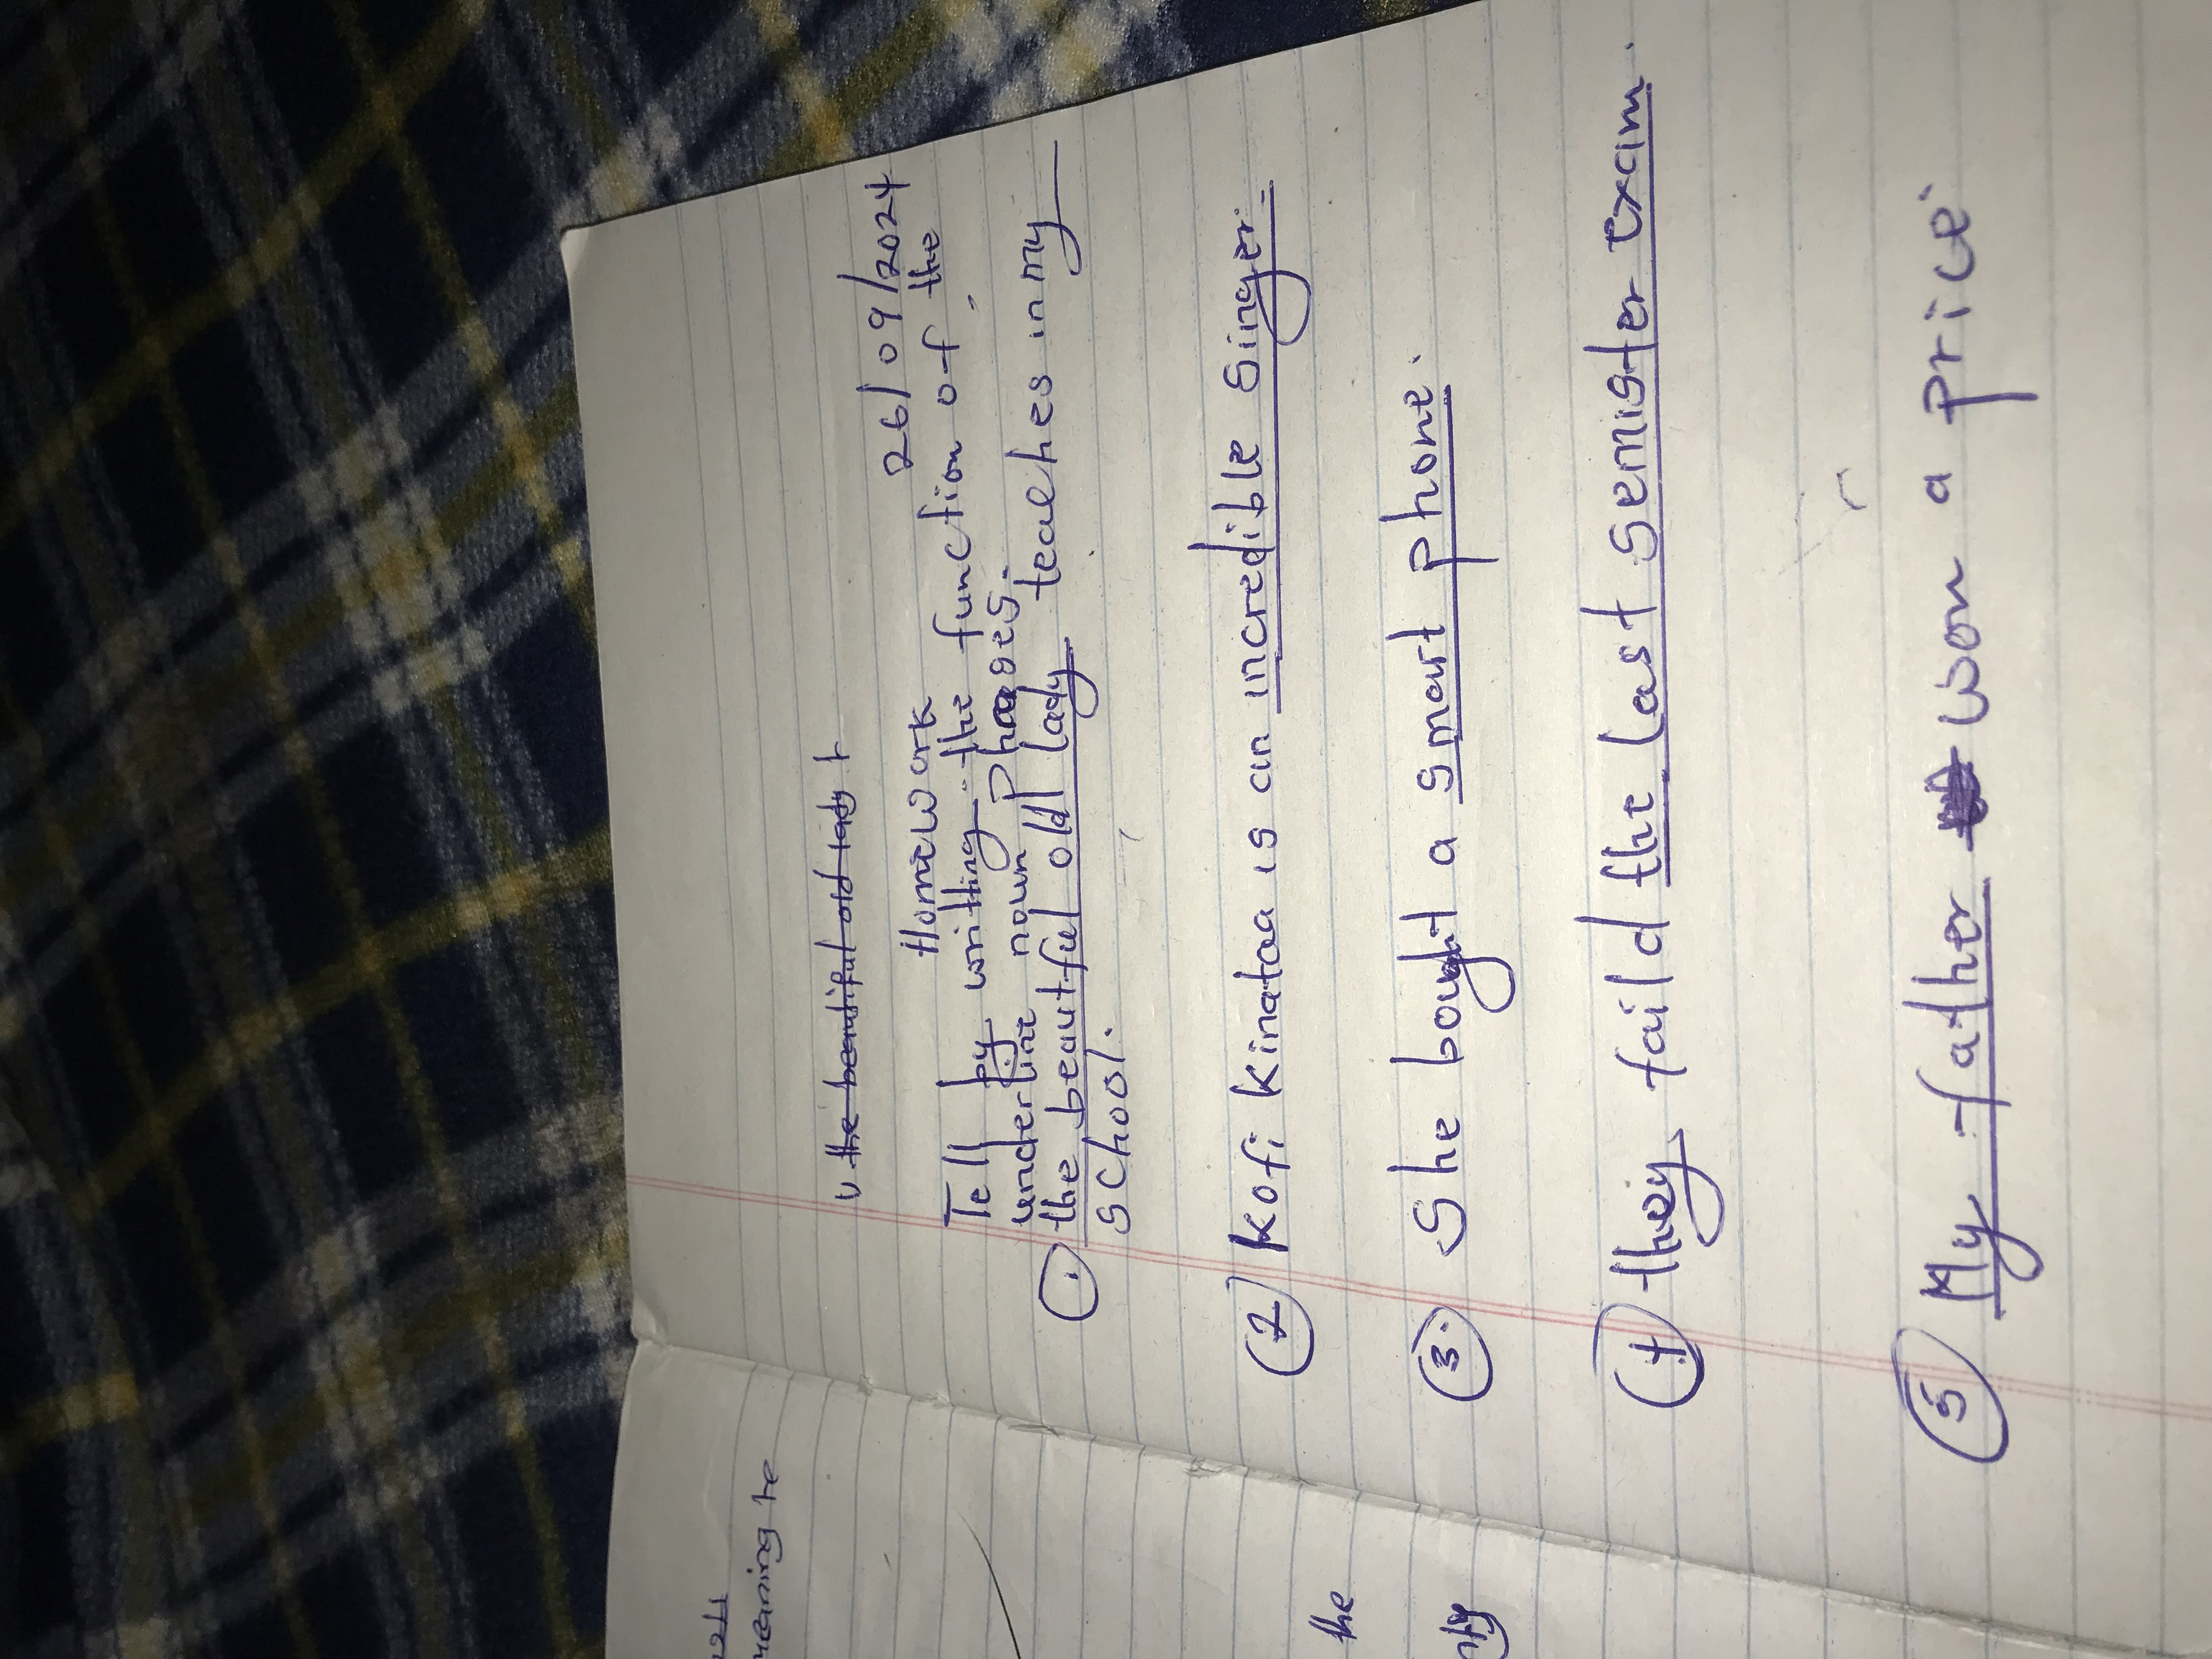 the beautiful old lady t
Homework 26/09/2024
Tell by writting the function of the
underline noun phases.
1. the beautful old lady teaches in my
school.
2 kofi kinataa is an incredible singer.
3. She bought a smart phone.
4 they faild the last semister exam.
5 My father won a price.
meaning te
the